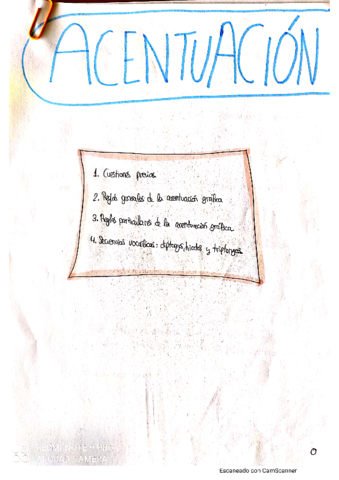 ACENTUACIÓN
1. Cuestiones previas
2. Reglas generales de la acentuación gráfica
3. Reglas particulares de la acentuación gráfica
4. Secuencias vocálicas: diptongos, hiatos y triptongos
0
Escaneado con CamScanner